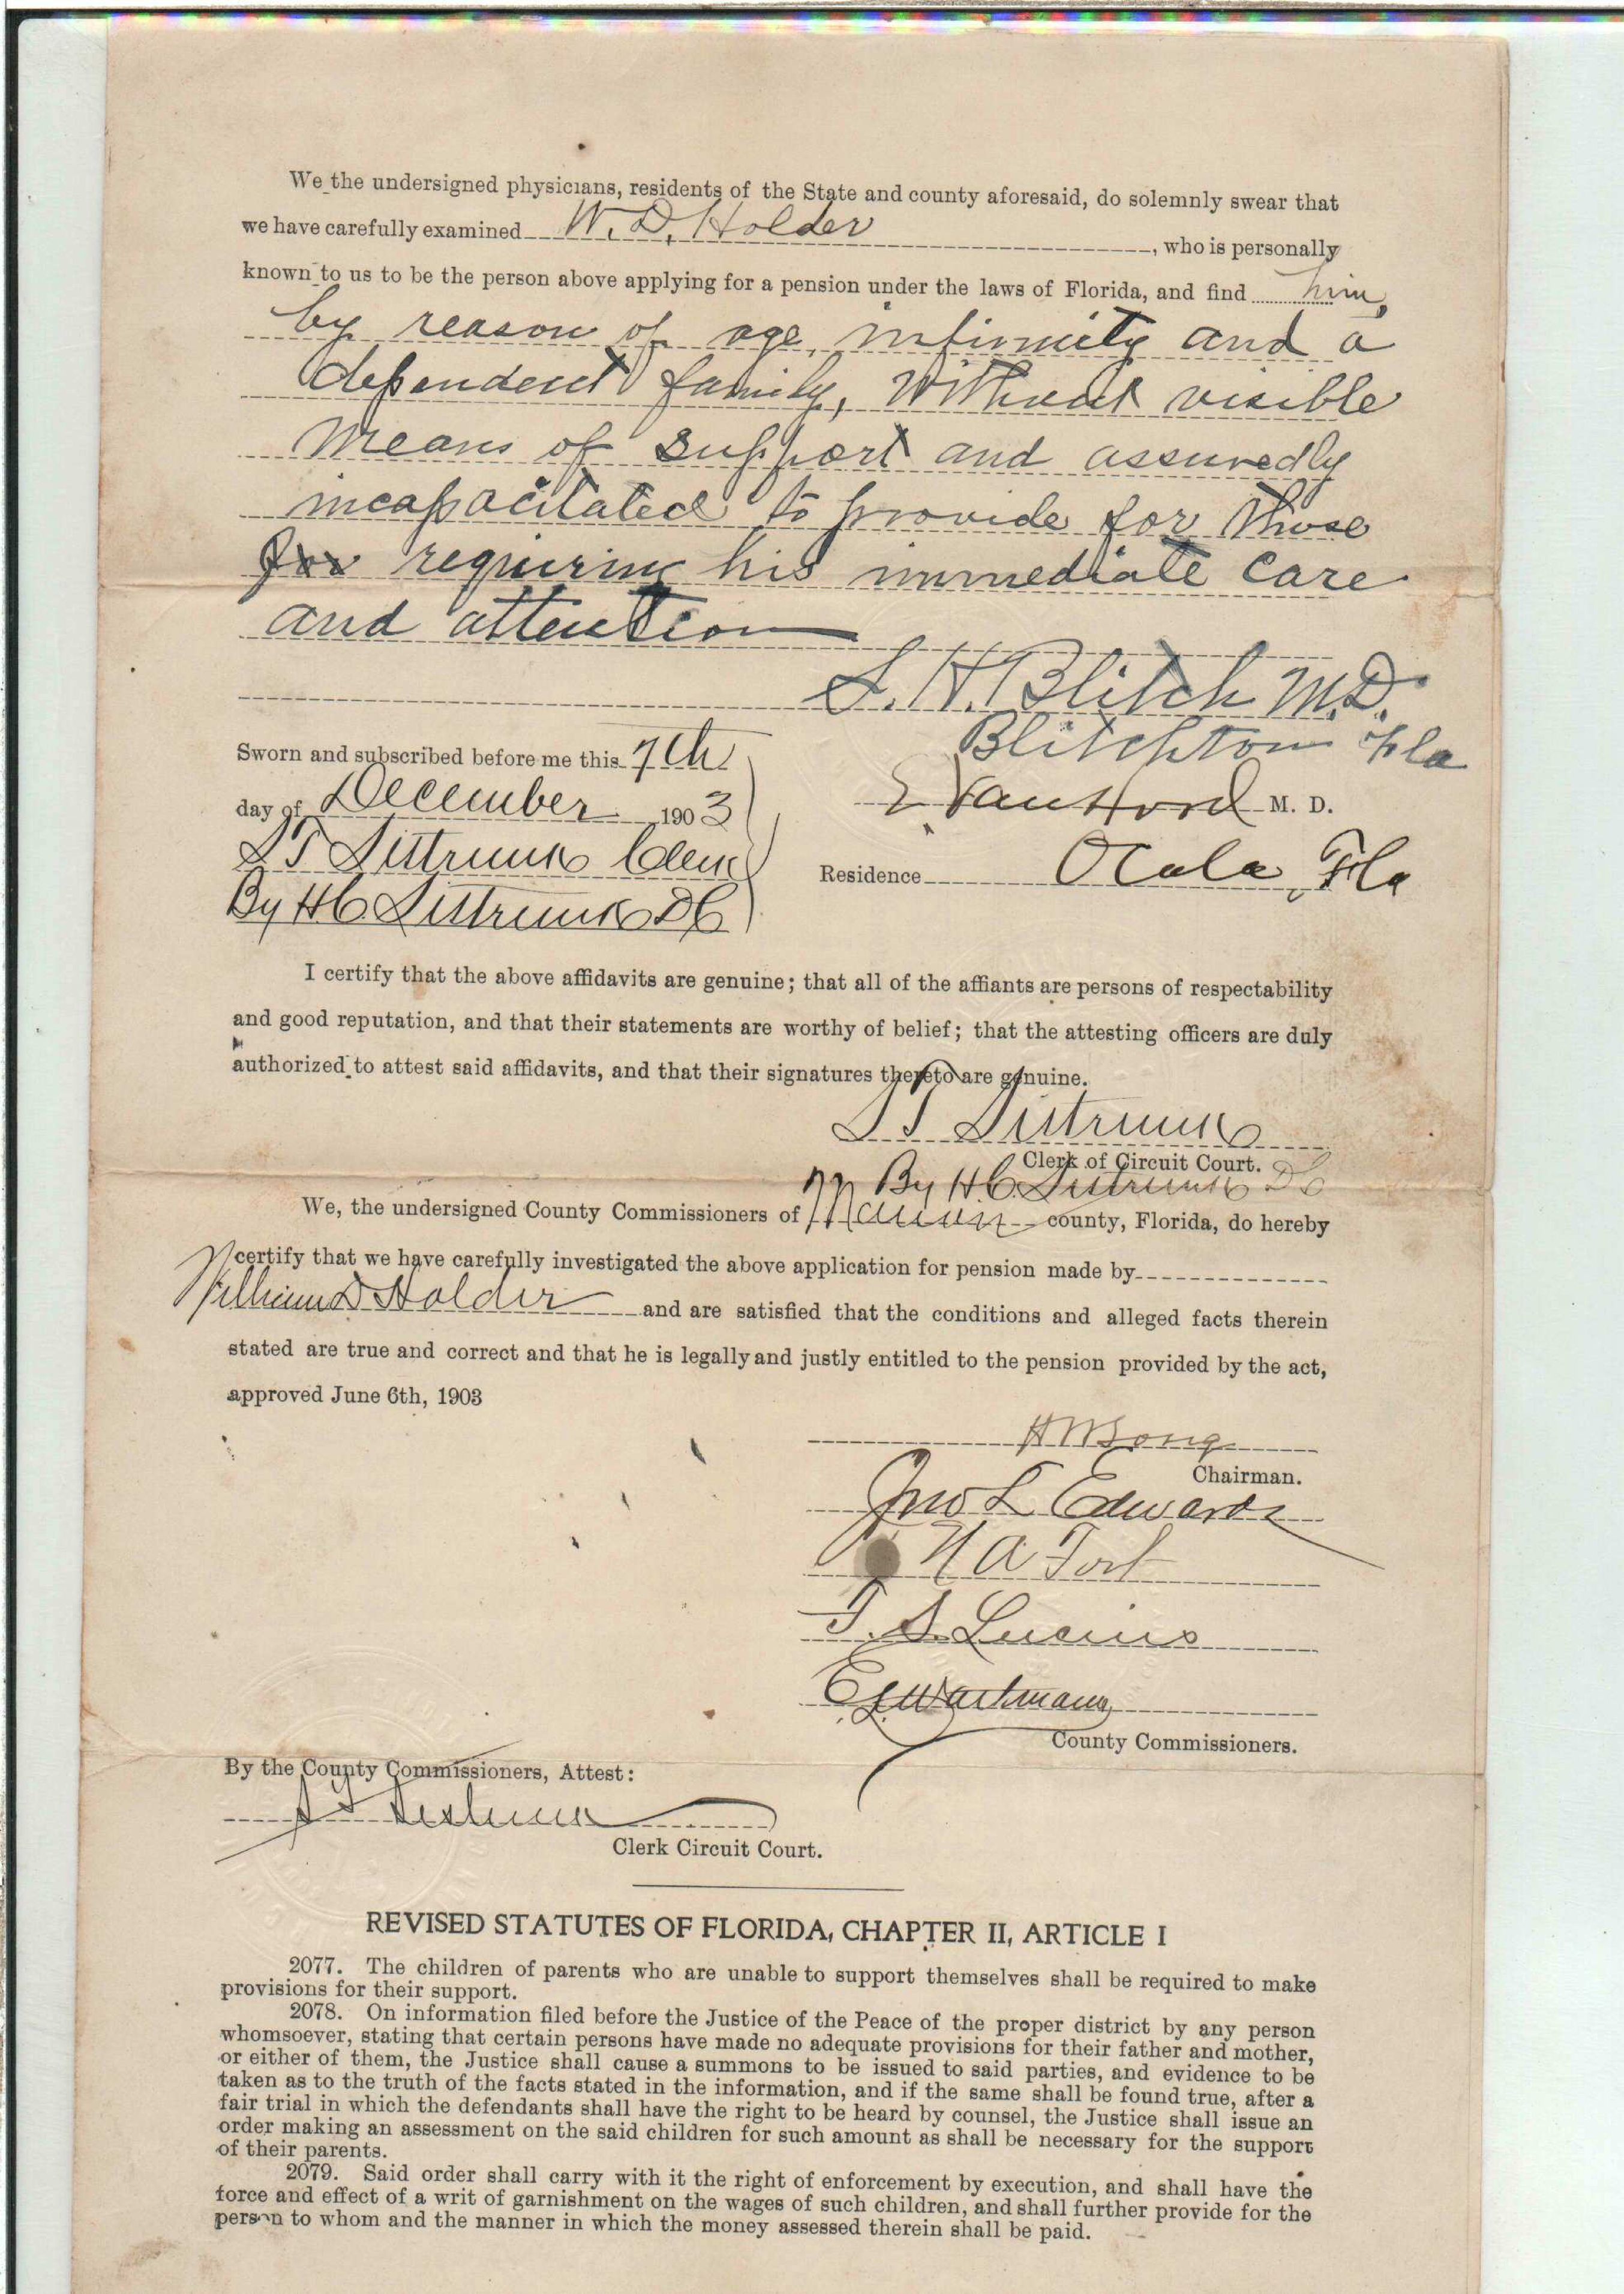 We the undersigned physicians, residents of the State and county aforesaid, do solemnly swear that
we have carefully examined W. D. Holder, who is personally
known to us to be the person above applying for a pension under the laws of Florida, and find him,
by reason of age, infirmity and a
dependent family, without visible
means of support and assuredly
incapacitated to provide for those
for requiring his immediate care
and attention
S. H. Blitch M.D.
Blitchton Fla
Sworn and subscribed before me this 7th
day of December 1903
E Van Hood M. D.
S T Sistrunk Clerk
Residence Ocala, Fla
By H C Sistrunk D C
I certify that the above affidavits are genuine; that all of the affiants are persons of respectability
and good reputation, and that their statements are worthy of belief; that the attesting officers are duly
authorized to attest said affidavits, and that their signatures thereto are genuine.
S T Sistrunk
Clerk of Circuit Court.
By H C Sistrunk D C
We, the undersigned County Commissioners of Marion county, Florida, do hereby
certify that we have carefully investigated the above application for pension made by
William D Holder and are satisfied that the conditions and alleged facts therein
stated are true and correct and that he is legally and justly entitled to the pension provided by the act,
approved June 6th, 1903
H W Long
Chairman.
Jno L Edwards
N A Fort
T. S. Lucius
E L Wartmann
County Commissioners.
By the County Commissioners, Attest:
S T Sistrunk
Clerk Circuit Court.
REVISED STATUTES OF FLORIDA, CHAPTER II, ARTICLE I
2077. The children of parents who are unable to support themselves shall be required to make
provisions for their support.
2078. On information filed before the Justice of the Peace of the proper district by any person
whomsoever, stating that certain persons have made no adequate provisions for their father and mother,
or either of them, the Justice shall cause a summons to be issued to said parties, and evidence to be
taken as to the truth of the facts stated in the information, and if the same shall be found true, after a
fair trial in which the defendants shall have the right to be heard by counsel, the Justice shall issue an
order making an assessment on the said children for such amount as shall be necessary for the support
of their parents.
2079. Said order shall carry with it the right of enforcement by execution, and shall have the
force and effect of a writ of garnishment on the wages of such children, and shall further provide for the
person to whom and the manner in which the money assessed therein shall be paid.